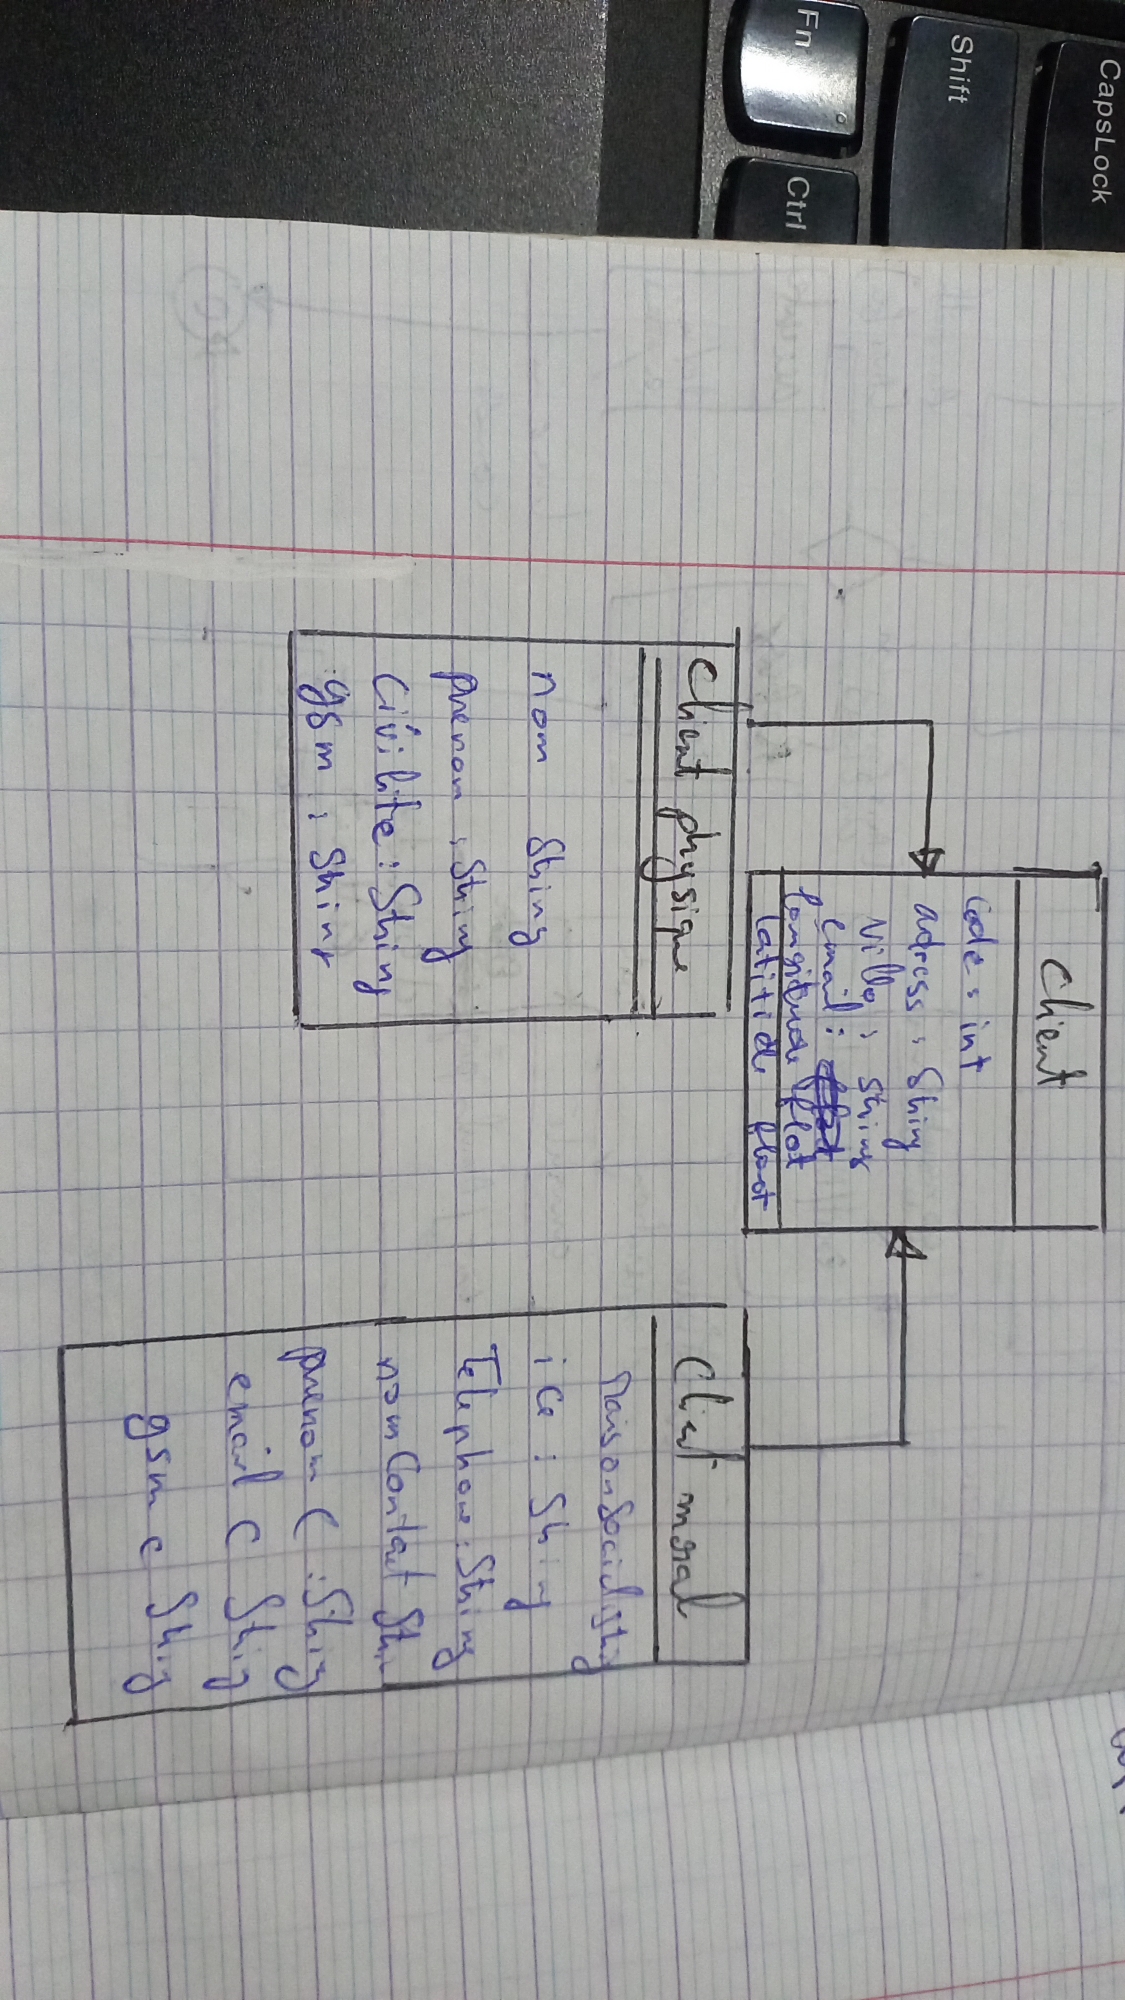 CapsLock
Shift
Fn
Ctrl
Client
Code : int
adress : String
Ville : String
email :
longitude flot
latitide float
Client physique
nom String
prenom : String
Civilite : String
gsm : String
Client moral
RaisonSocial String
ice : String
Telephone : String
nomContact Stri
prenom C : String
email C String
gsm c String